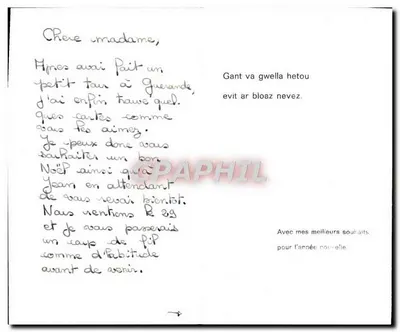 Chere madame,
Apres avoir fait un
petit tour à Guerande,
j'ai enfin trouvé quel
ques cartes comme
vous les aimez.
Je peux donc vous
souhaiter un bon
Noël ainsi qu'à
Jean en attendant
de vous revoir bientot.
Nous rentrons le 29
et je vous passerais
un coup de fil
comme d'habitude
avant de venir.
Gant va gwella hetou
evit ar bloaz nevez.
Avec mes meilleurs souhaits
pour l'année nouvelle.
CPAPHIL